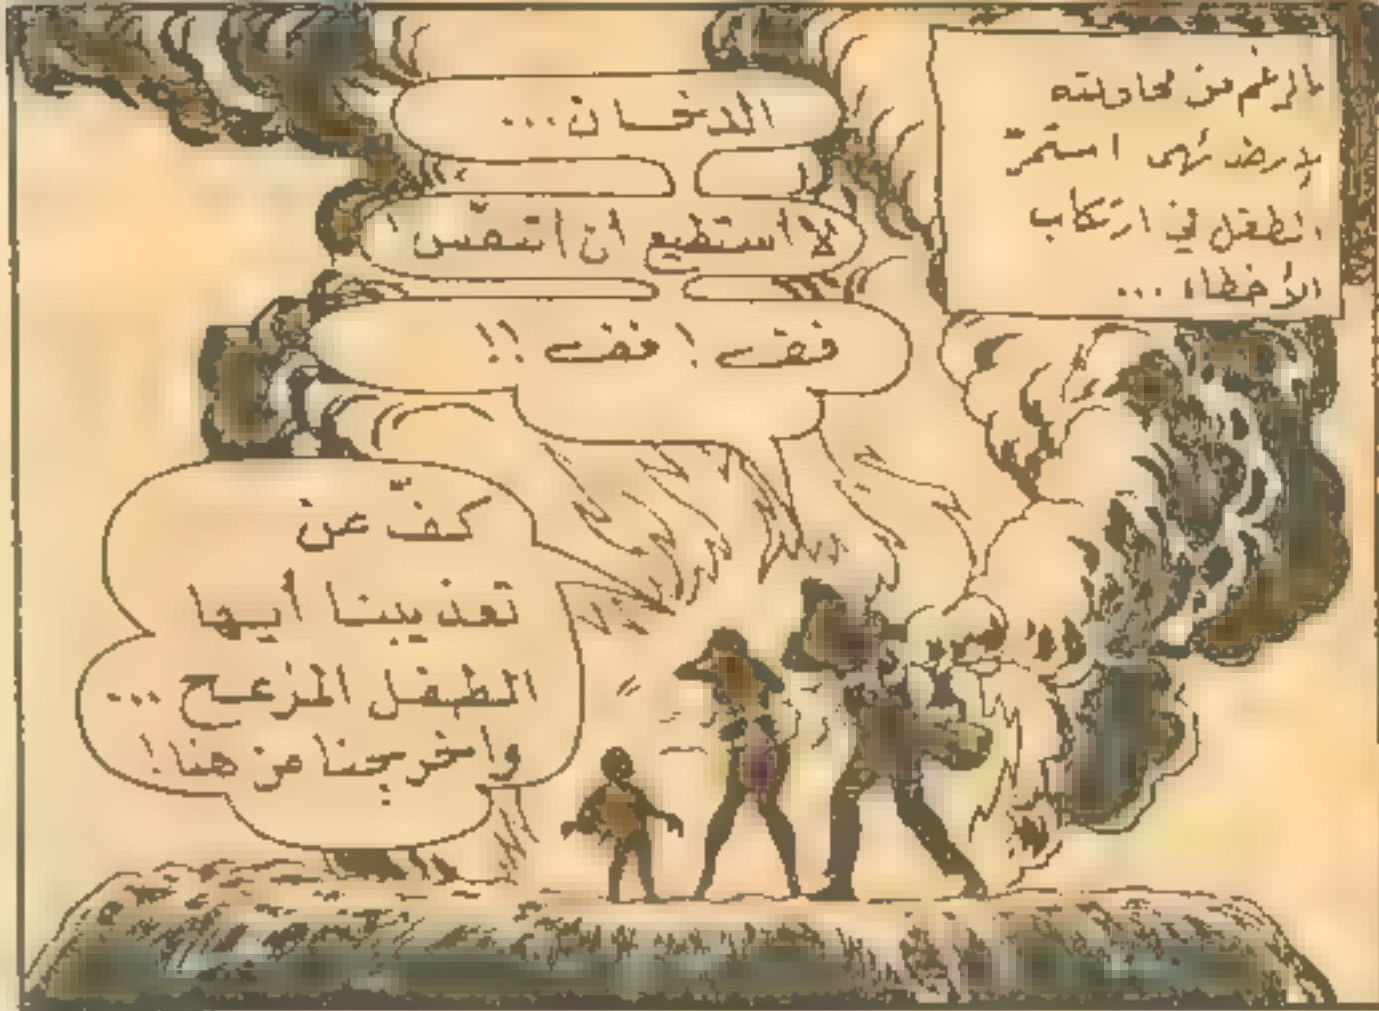 بالرغم من محاولته
لإرضائهم استمرّ
الطفل في ارتكاب
الأخطاء ...
الدخان ...
لا استطيع ان اتنفّس !
فف ! فف !!
كفّ عن
تعذيبنا أيها
الطفل المزعج ...
واخرجنا من هنا !